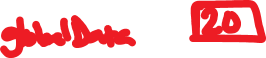 globalDate 20